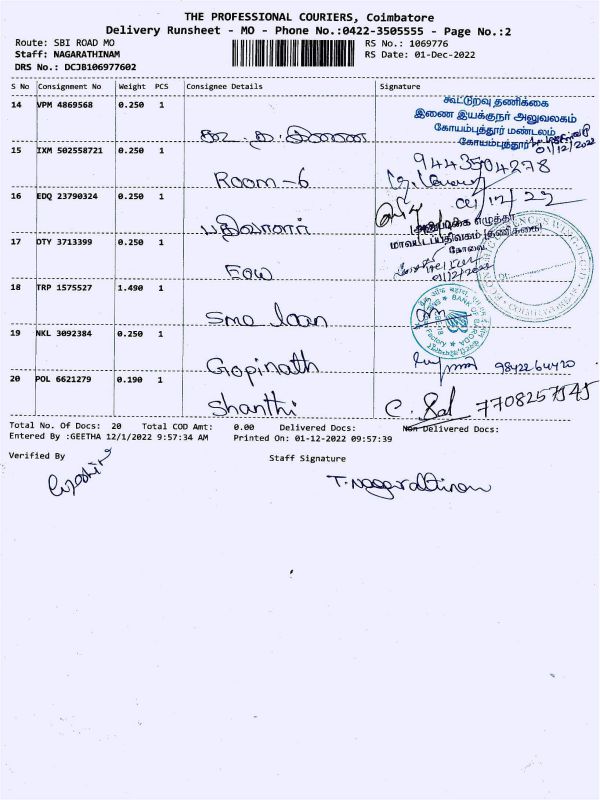 THE PROFESSIONAL COURIERS, Coimbatore
Delivery Runsheet - MO - Phone No.:0422-3505555 - Page No.:2
Route: SBI ROAD MO
Staff: NAGARATHINAM
DRS No.: DCJB106977602
RS No.: 1069776
RS Date: 01-Dec-2022
S No Consignment No Weight PCS Consignee Details Signature
14 VPM 4869568 0.250 1
கூட்டுறவு தணிக்கை
இணை இயக்குநர் அலுவலகம்
கோயம்புத்தூர் மண்டலம்
கோயம்புத்தூர்
01/12/2022
15 IXM 502558721 0.250 1 Room-6 9443504278
16 EDQ 23790324 0.250 1 01/12/22
17 DTY 3713399 0.250 1 EOW
மாவட்டப்பதிவகம் (தணிக்கை)
கோவை
18 TRP 1575527 1.490 1 Sme loan
BANK OF BARODA
19 NKL 3092384 0.250 1 Gopinath 9842264420
20 POL 6621279 0.190 1 Shanthi 7708257545
Total No. Of Docs: 20 Total COD Amt: 0.00 Delivered Docs: Non Delivered Docs:
Entered By :GEETHA 12/1/2022 9:57:34 AM Printed On: 01-12-2022 09:57:39
Verified By Staff Signature
T. Nagarathinam